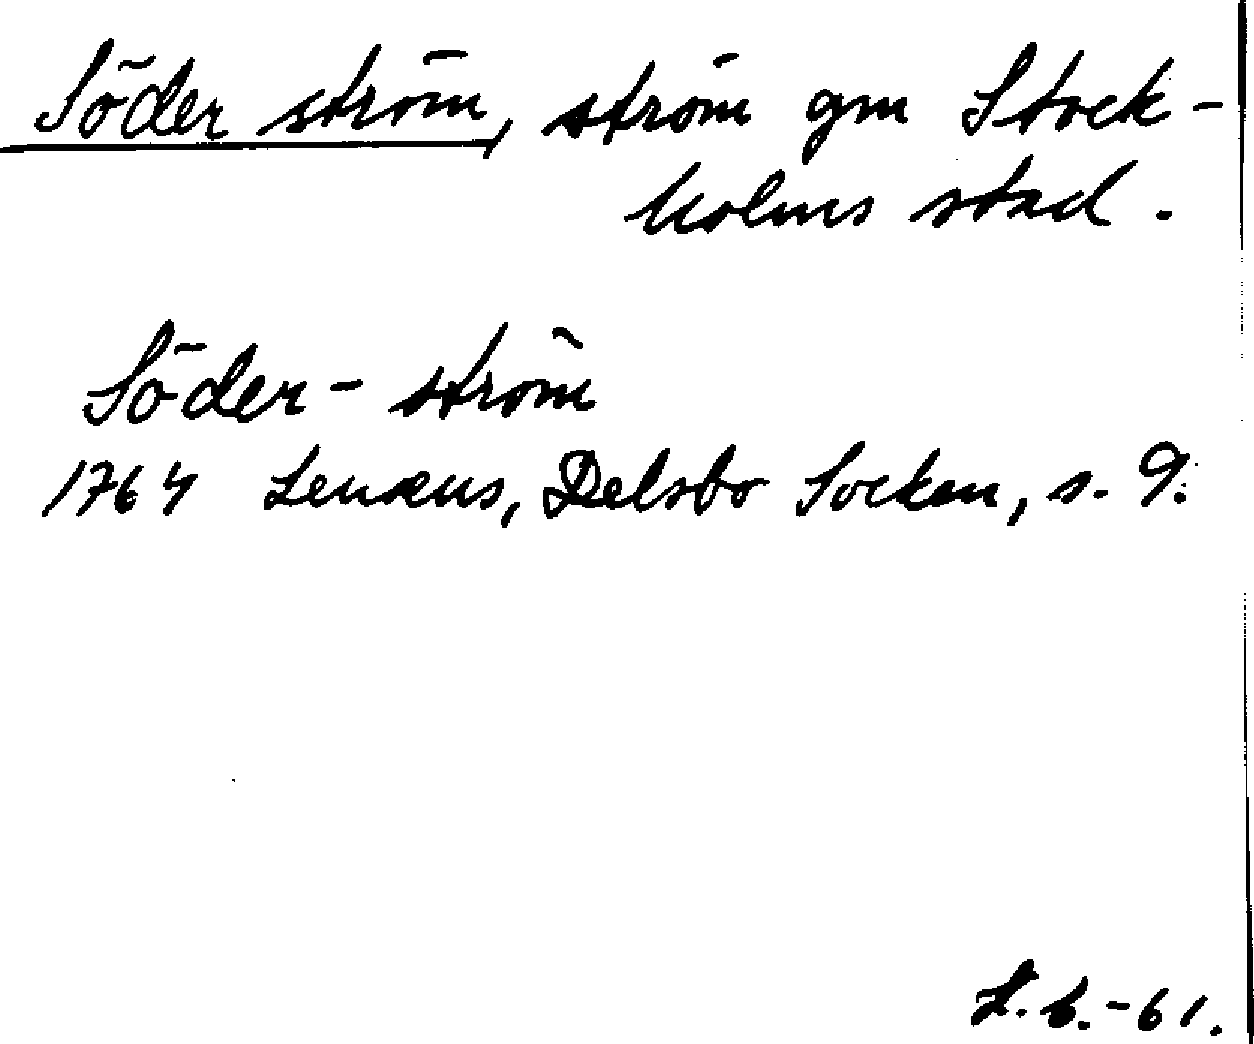 Söder ström, ström gm Stock-
holms stad.
Söder-ström
1764 Lenæus, Delsbo Socken, s. 9.
-61.